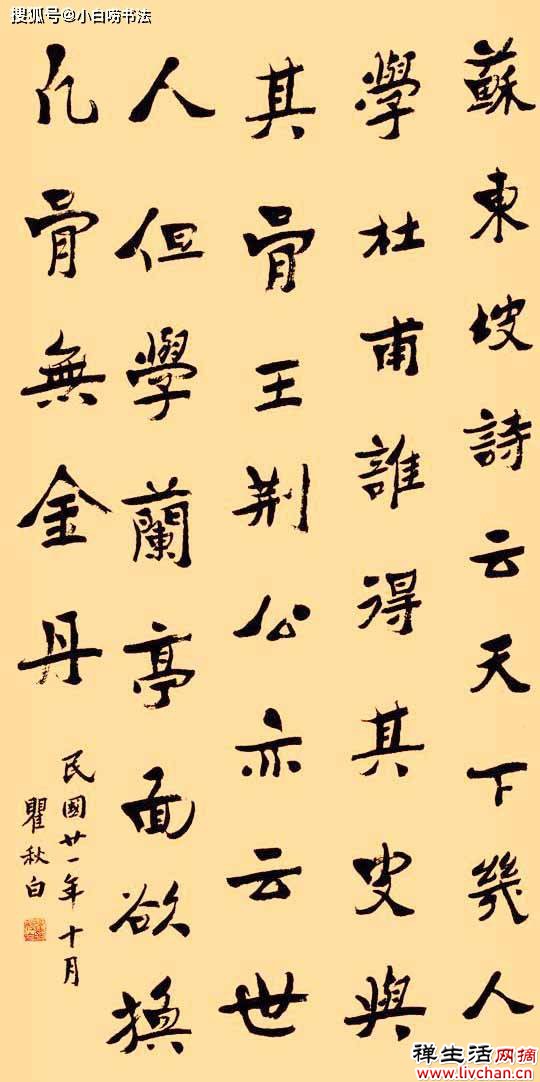 搜狐号@小白唠书法
蘇東坡詩云天下幾人
學杜甫誰得其皮與
其骨王荆公亦云世
人但學蘭亭面欲換
凡骨無金丹
民國廿一年十月
瞿秋白
禅生活网摘
www.livchan.cn